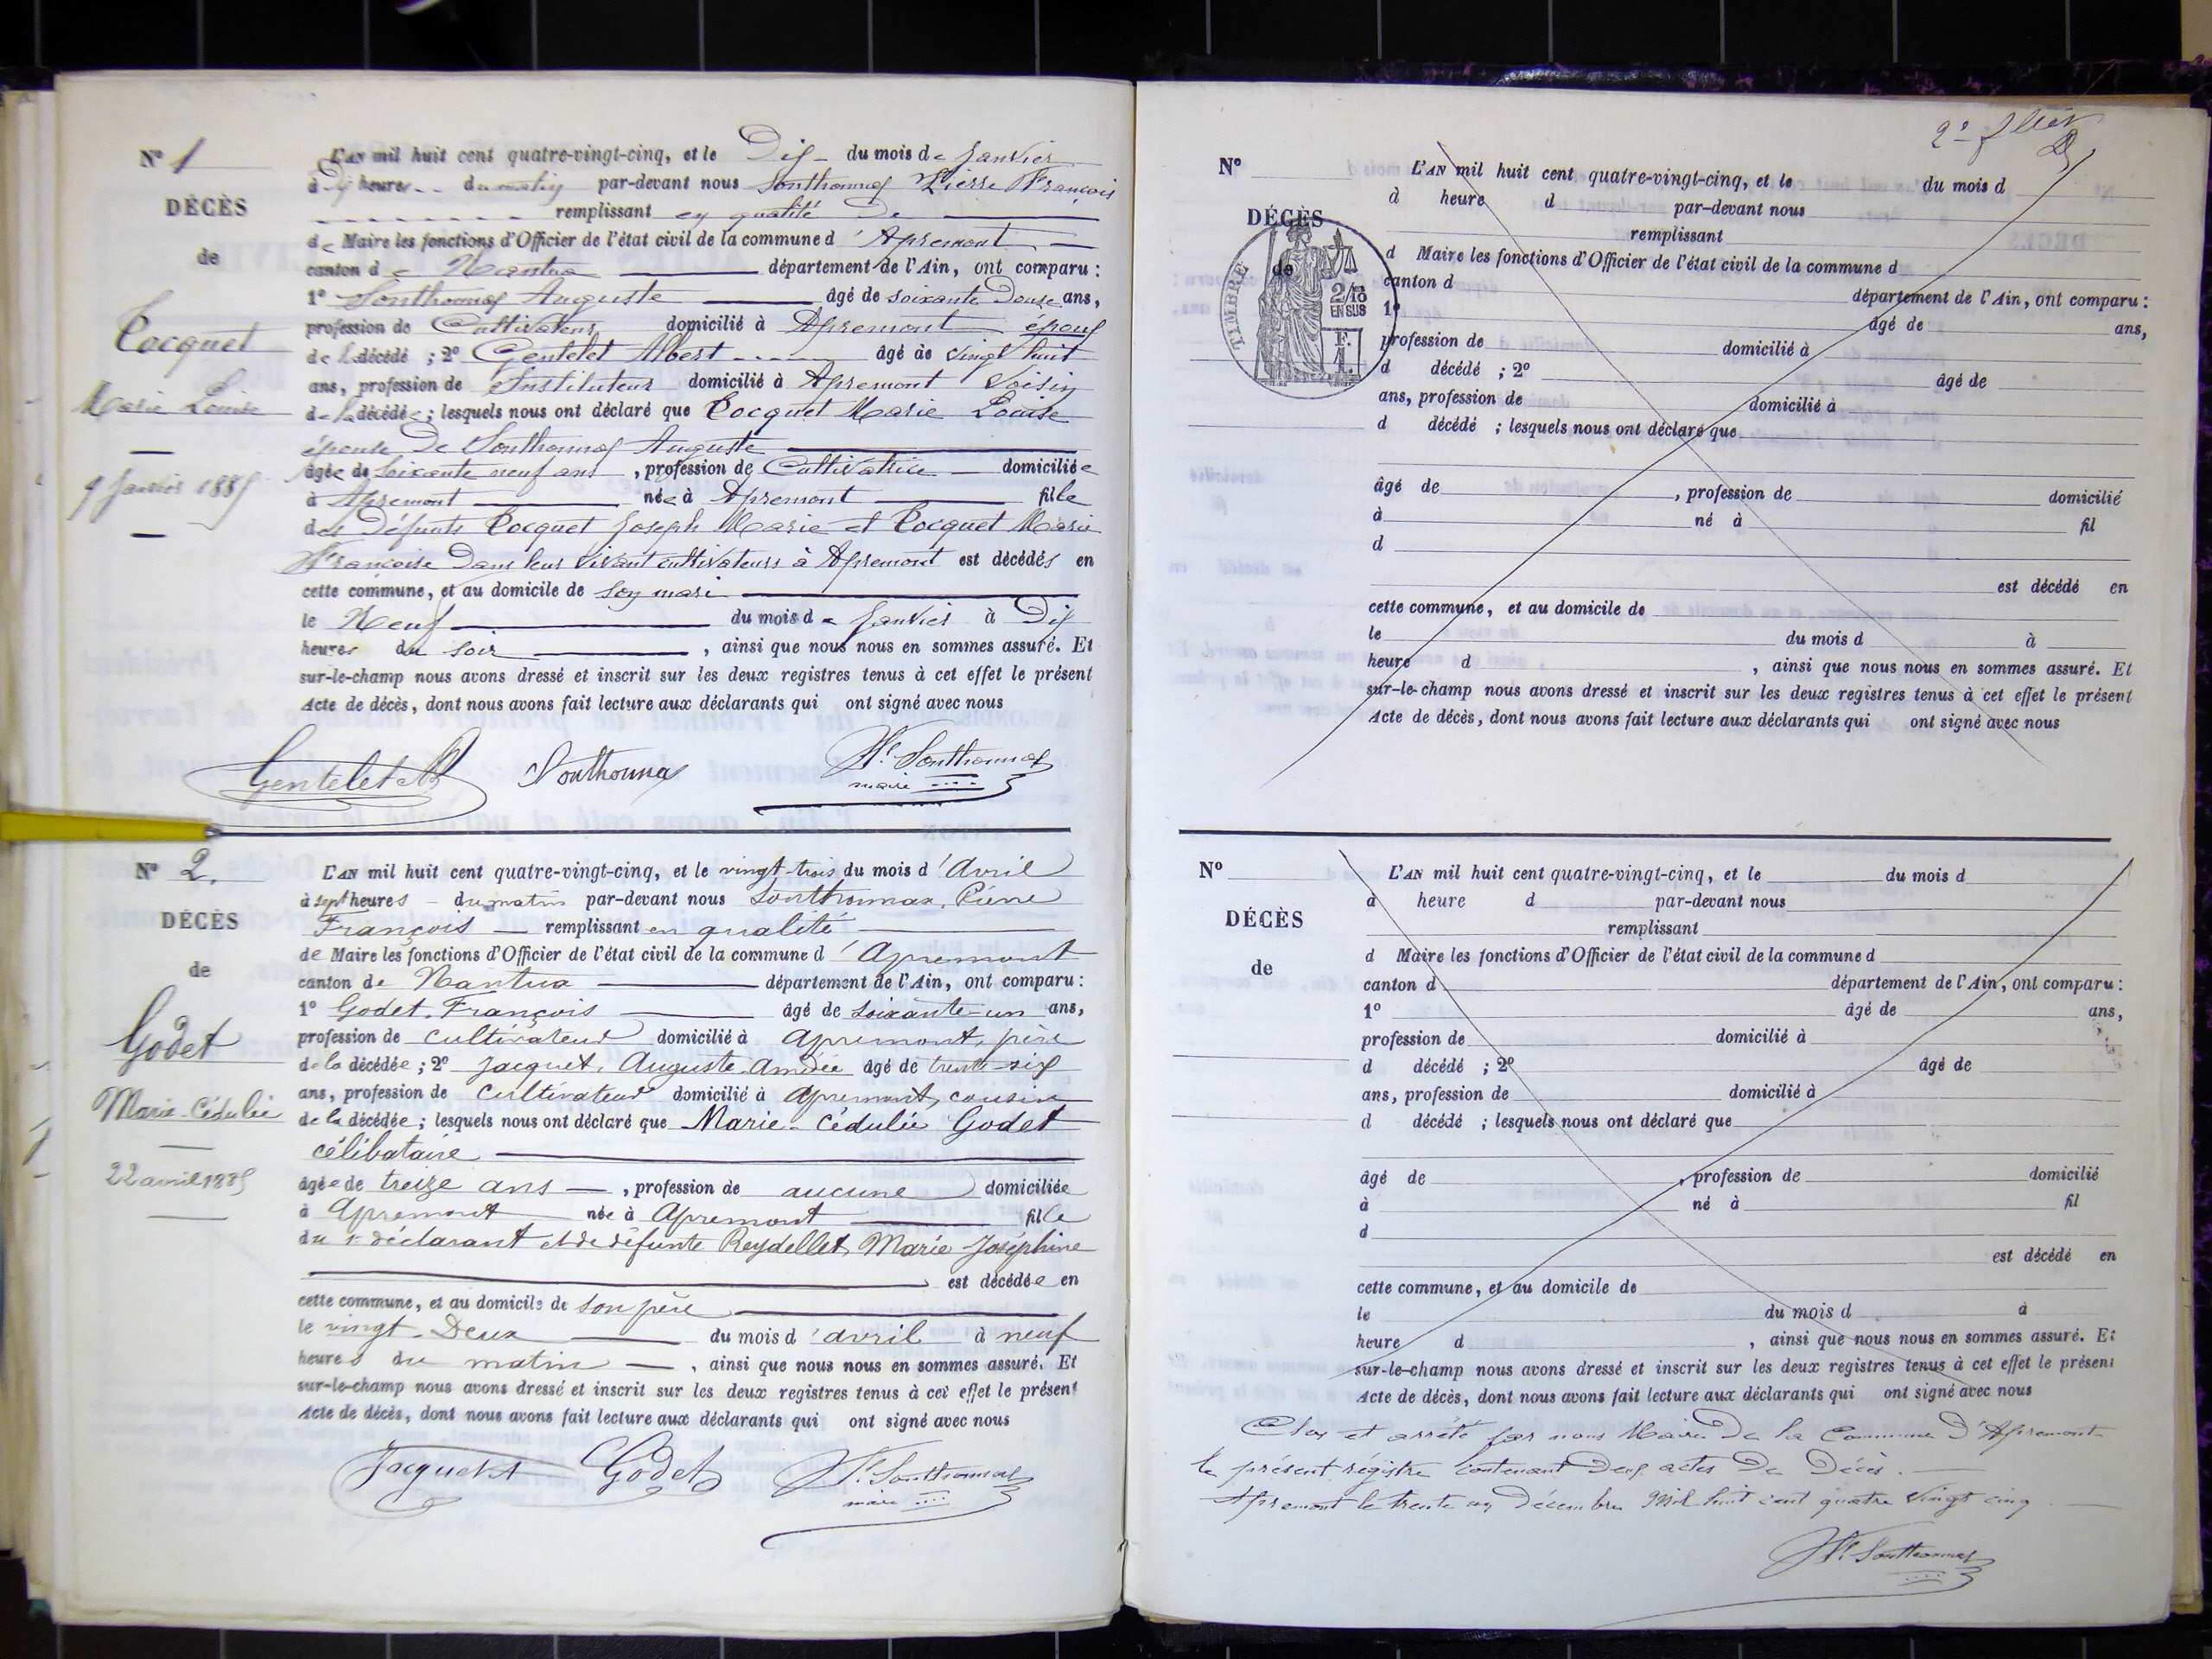 N° 1
DÉCÈS
de
Cocquet
Marie Louise
9 Janvier 1885
L'AN mil huit cent quatre-vingt-cinq, et le Dix du mois de Janvier
à Dix heures du matin par-devant nous Sonthonnax Pierre François
remplissant en qualité de
de Maire les fonctions d'Officier de l'état civil de la commune d'Apremont
canton de Nantua département de l'Ain, ont comparu :
1° Sonthonnax Auguste âgé de soixante Douse ans,
profession de Cultivateur domicilié à Apremont époux
de la décédé ; 2° Gentelet Albert âgé de vingt huit
ans, profession de Instituteur domicilié à Apremont Voisin
de la décédée ; lesquels nous ont déclaré que Cocquet Marie Louise
épouse De Sonthonnax Auguste
âgée de Soixante neuf ans, profession de Cultivatrice domiciliée
à Apremont née à Apremont fille
des Défunts Cocquet Joseph Marie et Cocquet Marie
Françoise Dans leur vivant cultivateurs à Apremont est décédés en
cette commune, et au domicile de son mari
le Neuf du mois de Janvier à Dix
heures du soir, ainsi que nous nous en sommes assuré. Et
sur-le-champ nous avons dressé et inscrit sur les deux registres tenus à cet effet le présent
Acte de décès, dont nous avons fait lecture aux déclarants qui ont signé avec nous
Gentelet A Sonthonnax Sonthonnax
maire
N° 2.
DÉCÈS
de
Godet
Marie-Cédulie
22 avril 1885
L'AN mil huit cent quatre-vingt-cinq, et le vingt-trois du mois d'Avril
à sept heures du matin par-devant nous Sonthonnax, Pierre
François remplissant en qualité
de Maire les fonctions d'Officier de l'état civil de la commune d'Apremont
canton de Nantua département de l'Ain, ont comparu :
1° Godet, François âgé de soixante-un ans,
profession de cultivateur domicilié à Apremont, père
de la décédée ; 2° Jacquet, Auguste Amdée âgé de trente-six
ans, profession de cultivateur domicilié à Apremont, cousin
de la décédée ; lesquels nous ont déclaré que Marie-Cédulie Godet
célibataire
âgée de treize ans, profession de aucune domiciliée
à Apremont née à Apremont fille
du 1er déclarant et de défunte Reydellet, Marie Joséphine
est décédée en
cette commune, et au domicile de son père
le vingt-Deux du mois d'avril à neuf
heures du matin, ainsi que nous nous en sommes assuré. Et
sur-le-champ nous avons dressé et inscrit sur les deux registres tenus à cet effet le présent
Acte de décès, dont nous avons fait lecture aux déclarants qui ont signé avec nous
Jacquet A Godet Sonthonnax
maire
N°
DÉCÈS
de
TIMBRE
2/10
EN SUS
F.
1.
L'AN mil huit cent quatre-vingt-cinq, et le du mois d
à heure d par-devant nous
remplissant
d Maire les fonctions d'Officier de l'état civil de la commune d
canton d département de l'Ain, ont comparu :
1° âgé de ans,
profession de domicilié à
d décédé ; 2° âgé de
ans, profession de domicilié à
d décédé ; lesquels nous ont déclaré que
âgé de , profession de domicilié
à né à fil
d
est décédé en
cette commune, et au domicile de
le du mois d à
heure d , ainsi que nous nous en sommes assuré. Et
sur-le-champ nous avons dressé et inscrit sur les deux registres tenus à cet effet le présent
Acte de décès, dont nous avons fait lecture aux déclarants qui ont signé avec nous
N°
DÉCÈS
de
L'AN mil huit cent quatre-vingt-cinq, et le du mois d
à heure d par-devant nous
remplissant
d Maire les fonctions d'Officier de l'état civil de la commune d
canton d département de l'Ain, ont comparu :
1° âgé de ans,
profession de domicilié à
d décédé ; 2° âgé de
ans, profession de domicilié à
d décédé ; lesquels nous ont déclaré que
âgé de , profession de domicilié
à né à fil
d
est décédé en
cette commune, et au domicile de
le du mois d à
heure d , ainsi que nous nous en sommes assuré. Et
sur-le-champ nous avons dressé et inscrit sur les deux registres tenus à cet effet le présent
Acte de décès, dont nous avons fait lecture aux déclarants qui ont signé avec nous
Clos et arrêté par nous Maire De la Commune D'Apremont
le présent régistre contenant Deux actes De Décès.
Apremont le trente un Décembre Mil huit cent quatre vingt cinq
Sonthonnax